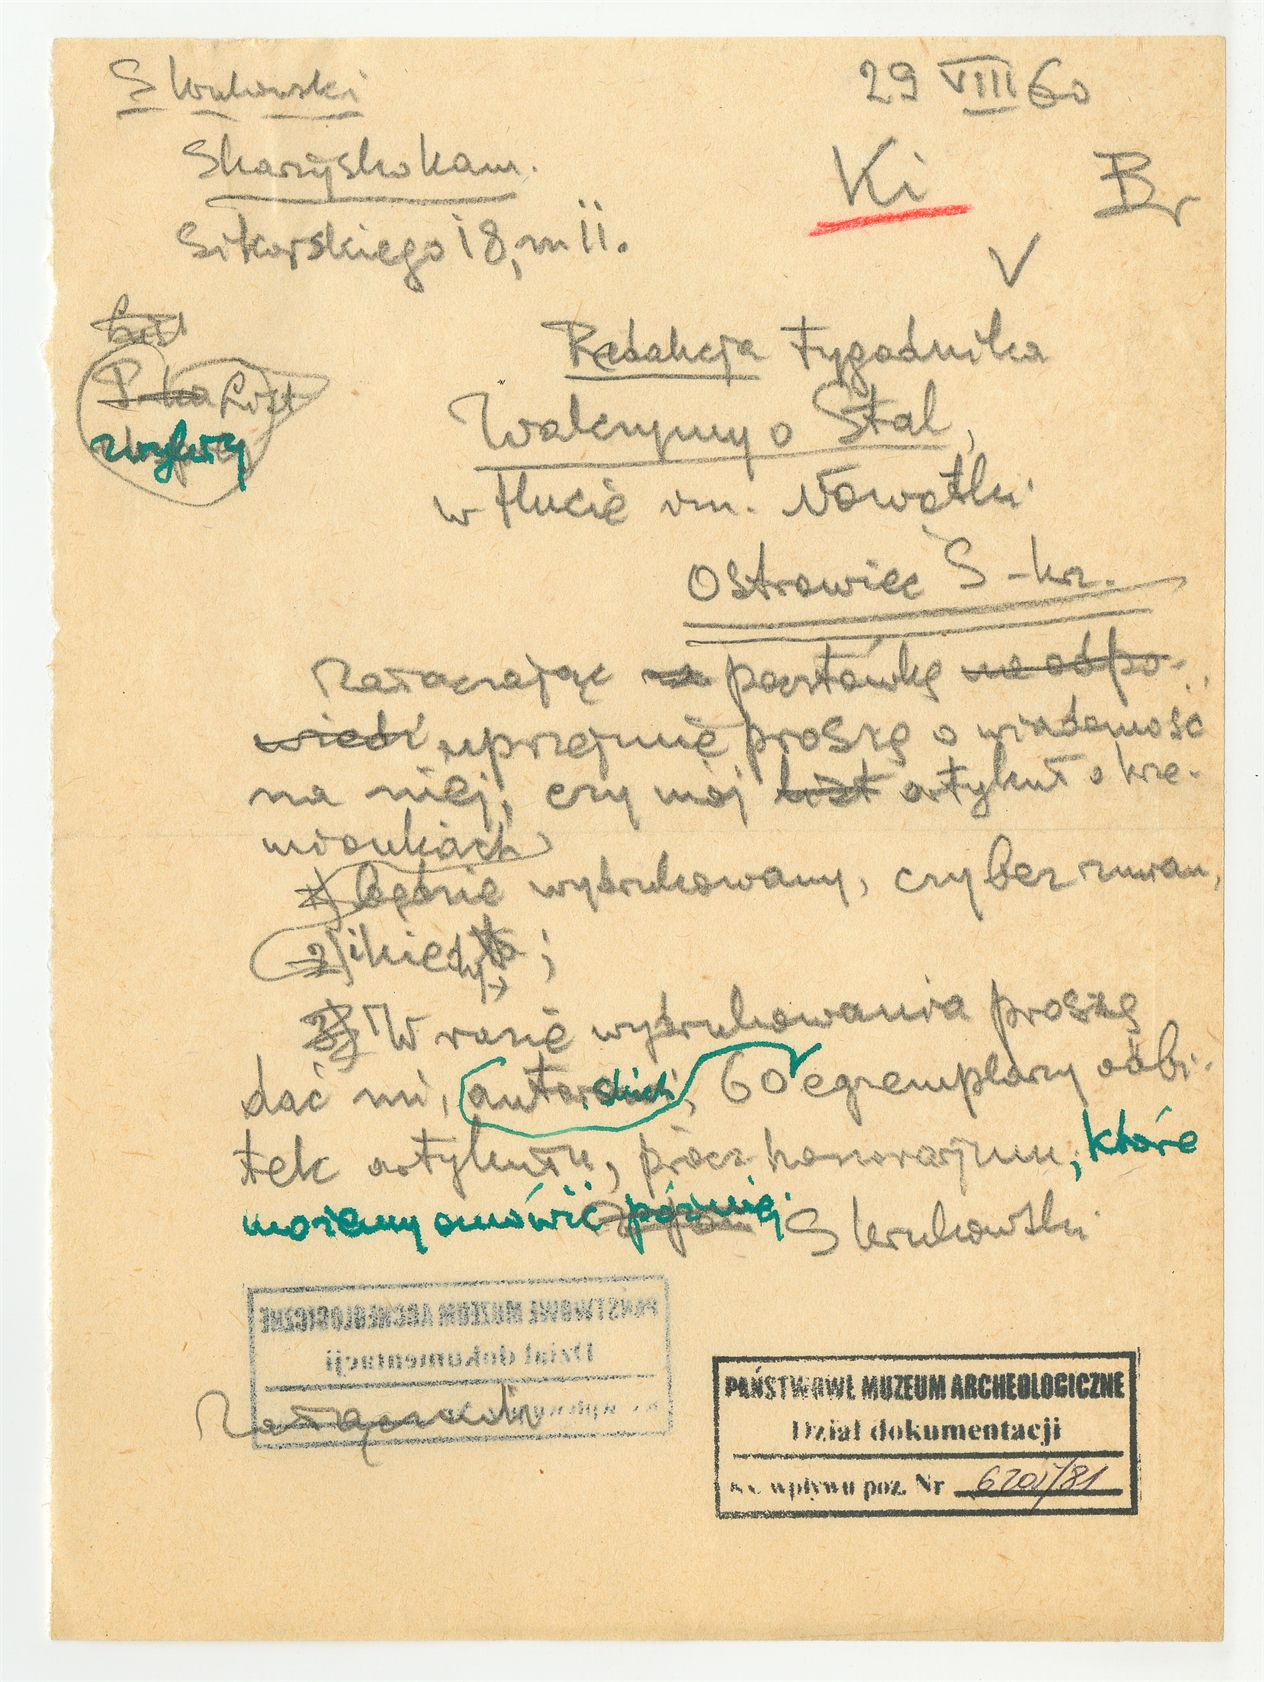 S Krukowski
29 VIII 60
Skarżysko Kam.
Ki
Br
Sikorskiego 18, m 11.
V
List
Redakcja tygodnika
P-ka List
Walczymy o Stal,
wysłany
w Hucie im. Nowotki
Ostrowiec Ś-krz.
Załączając na pocztówkę na odpo-
wiedź uprzejmie proszę o wiadomość
na niej, czy mój list artykuł o krze-
mionkach
1) będzie wydrukowany, czy bez zmian,
2) i kiedy to;
3) W razie wydrukowania proszę
dać mi, autorskich, 60 egzemplarzy odbi-
tek artykułu, prócz honorarjum, które
możemy omówić później. S Krukowski
PAŃSTWOWE MUZEUM ARCHEOLOGICZNE
Dział dokumentacji
Ks. wpływu poz. Nr
Załączniki
PAŃSTWOWE MUZEUM ARCHEOLOGICZNE
Dział dokumentacji
Ks. wpływu poz. Nr 6201/81